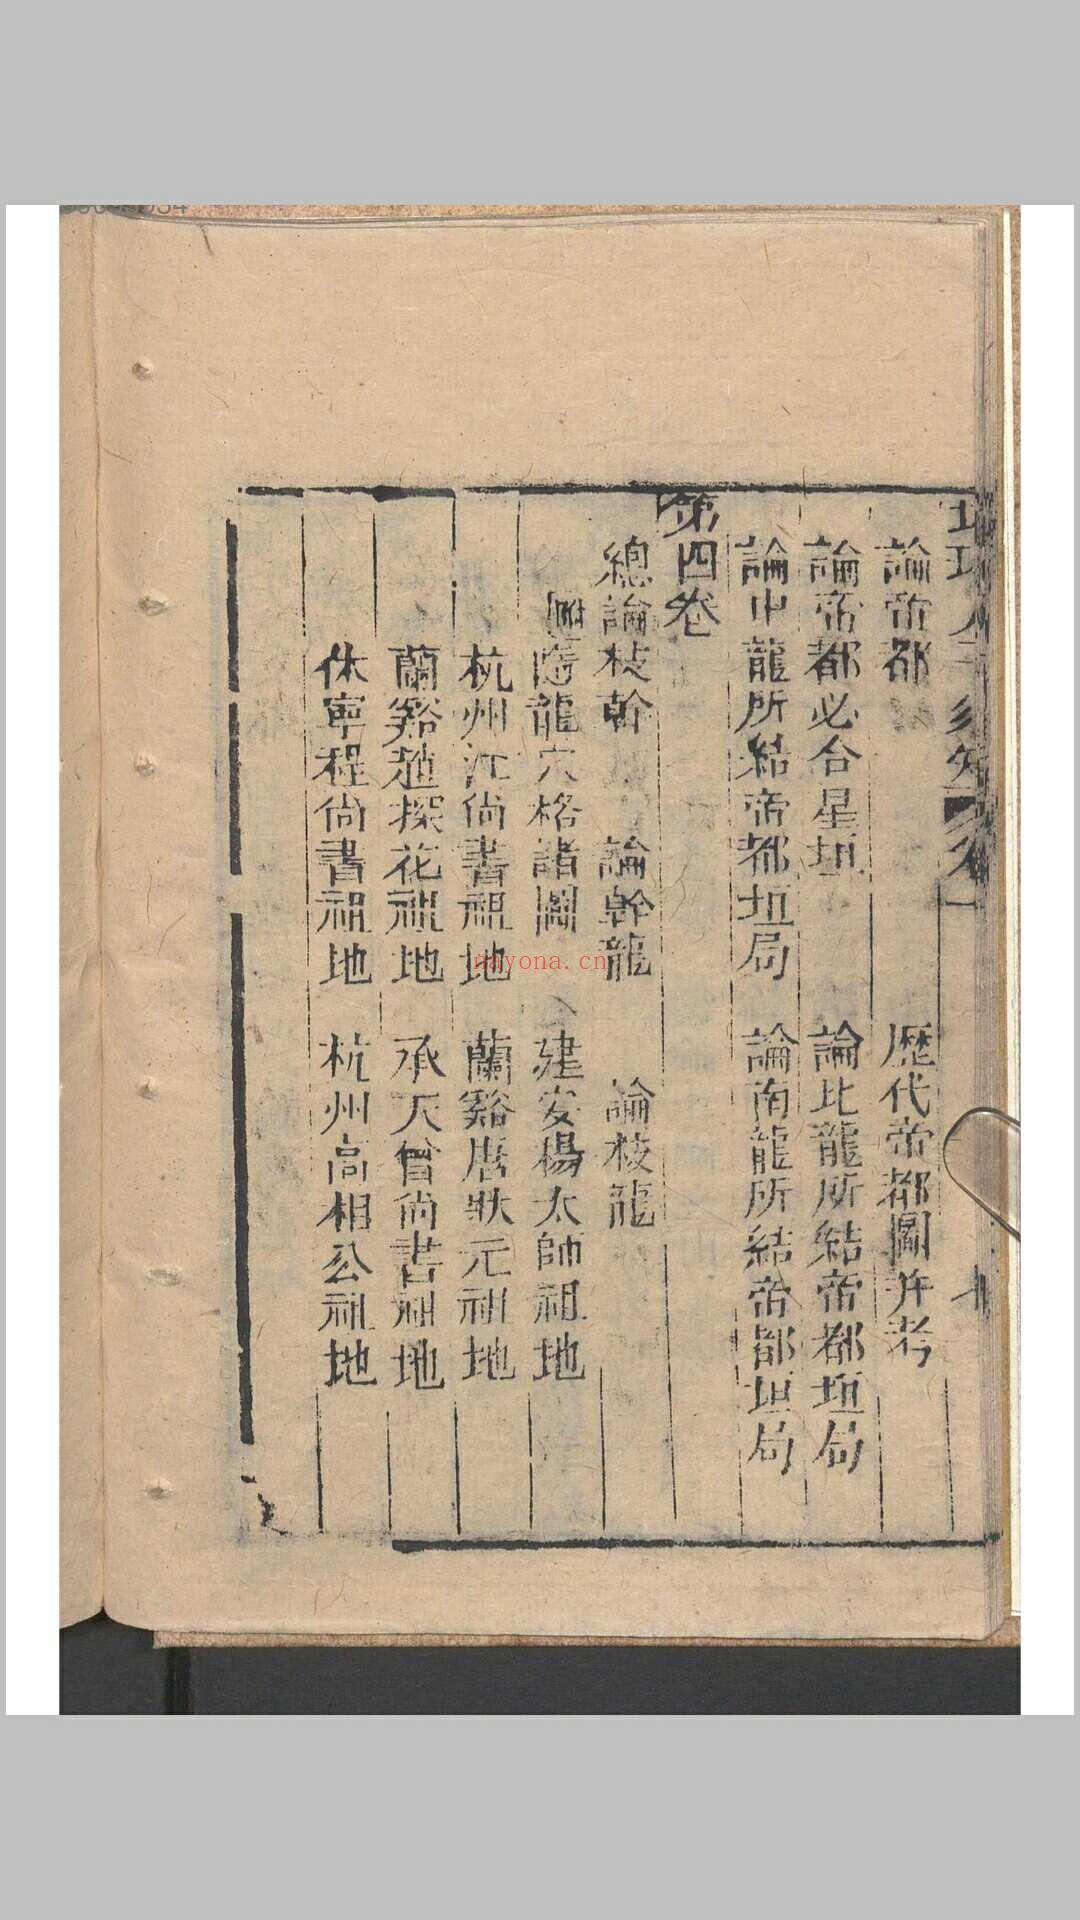 論帝都 歷代帝都圖并考
論帝都必合星垣 論北龍所結帝都垣局
論中龍所結帝都垣局 論南龍所結帝都垣局
第四卷
總論枝幹 論幹龍 論枝龍
附隱龍穴格諸圖 建安楊太師祖地
杭州江尚書祖地 蘭谿唐狀元祖地
蘭谿趙探花祖地 承天曾尚書祖地
休寧程尚書祖地 杭州高相公祖地
nayona.cn